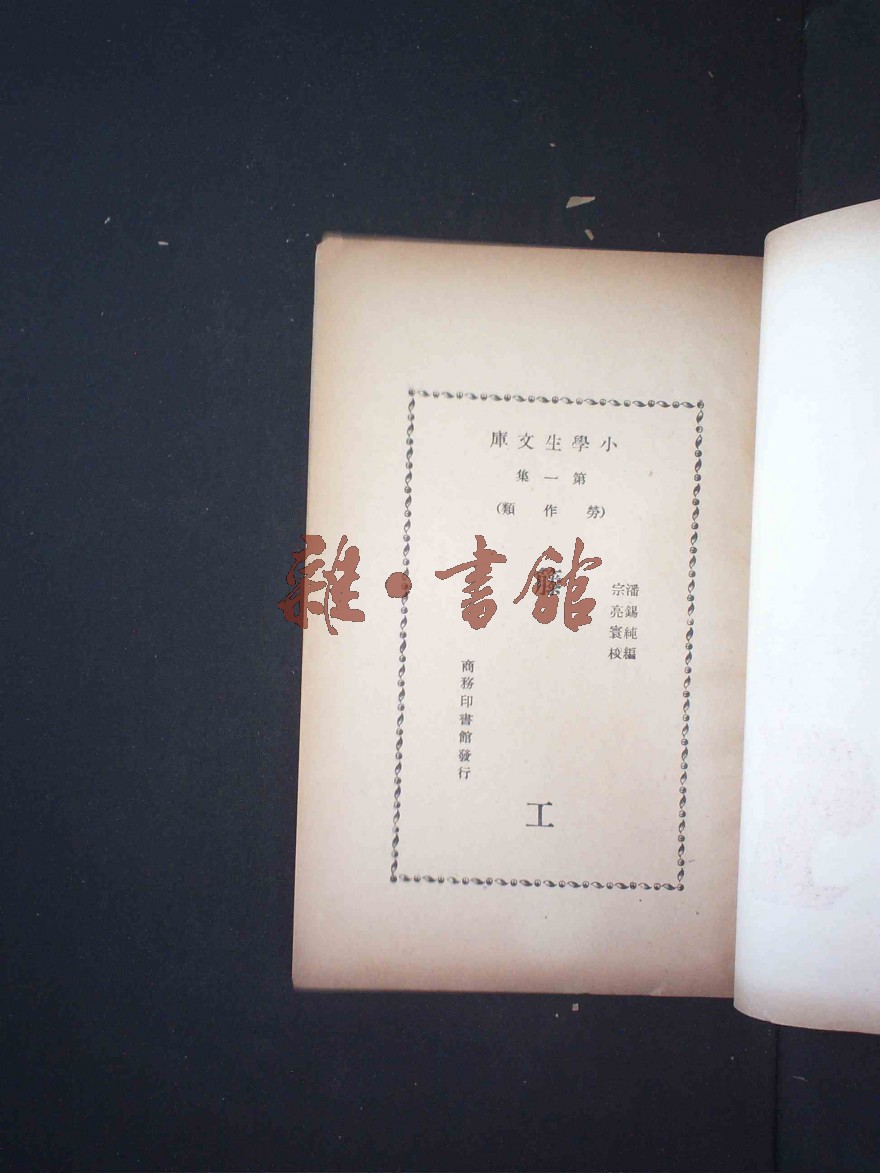 小學生文庫
第一集
(勞作類)
潘錫純編
宗亮寰校
工
商務印書館發行
雜·書館